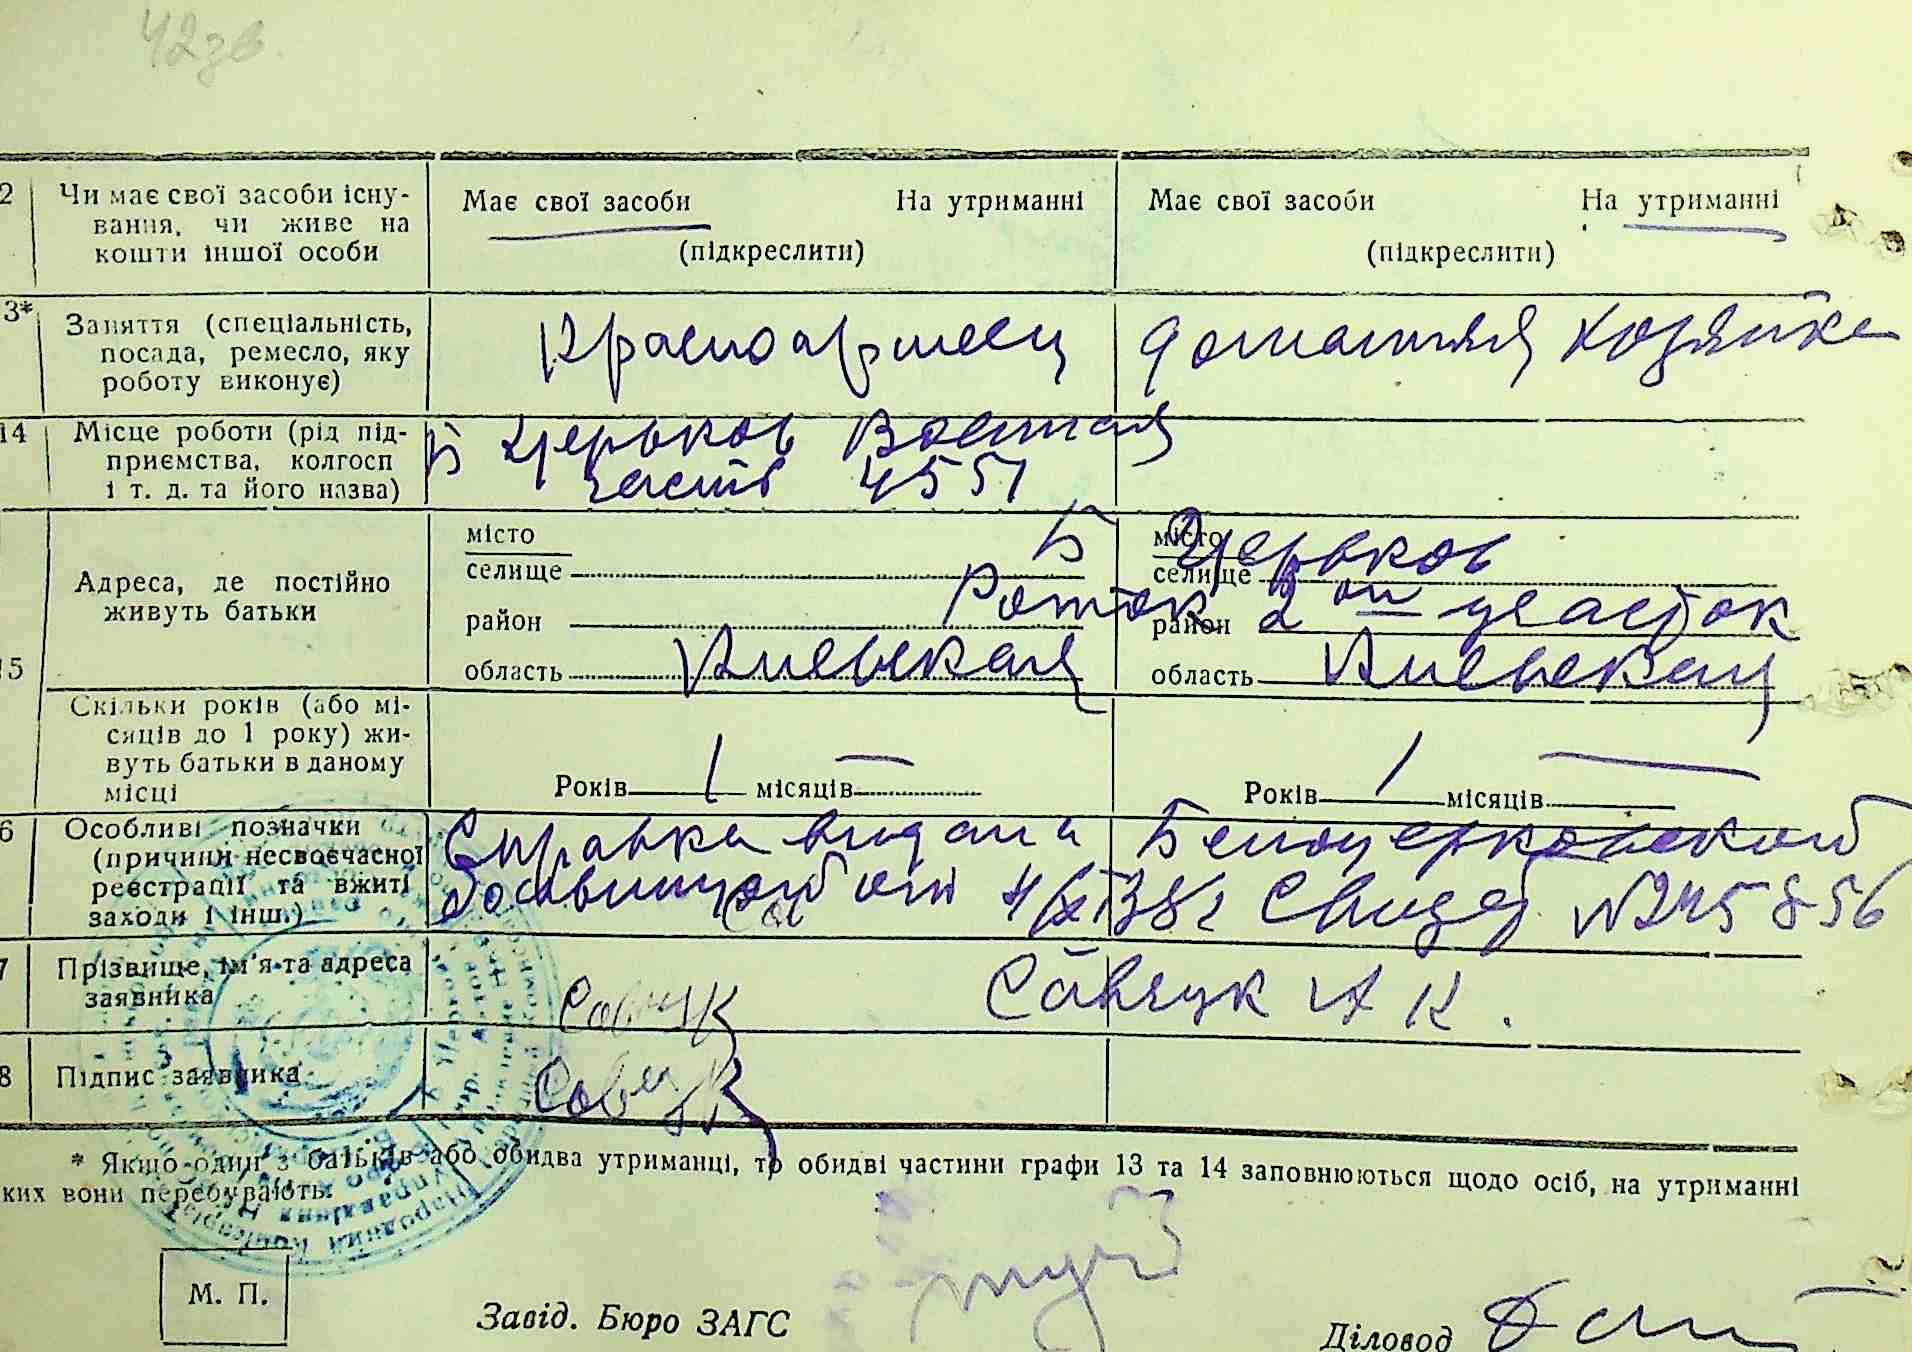 42зв.
2 Чи має свої засоби існу- Має свої засоби На утриманні Має свої засоби На утриманні
вання, чи живе на
кошти іншої особи (підкреслити) (підкреслити)
3* Заняття (спеціальність, Красноармеец домашняя хозяйка
посада, ремесло, яку
роботу виконує)
14 Місце роботи (рід під- Б Церьков Воинная
приємства, колгосп часть 4551
і т. д. та його назва)
місто Б місто Церьков
селище селище
Адреса, де постійно
живуть батьки
район Роток район 2ой участок
15 область Киевская область Киевская
Скільки років (або мі-
сяців до 1 року) жи-
вуть батьки в даному Років 1 місяців — Років 1 місяців —
місці
6 Особливі позначки Справка видана Белоцерковской
(причини несвоєчасної
реєстрації та вжиті больницей от 4/XI 38г Свидет №245856
заходи і інш.)
7 Прізвище, ім'я та адреса Савчук А К.
заявника Савчук
8 Підпис заявника Савчук
* Якщо один з батьків або обидва утриманці, то обидві частини графи 13 та 14 заповнюються щодо осіб, на утриманні
ких вони перебувають.
М. П.
Завід. Бюро ЗАГС
Діловод